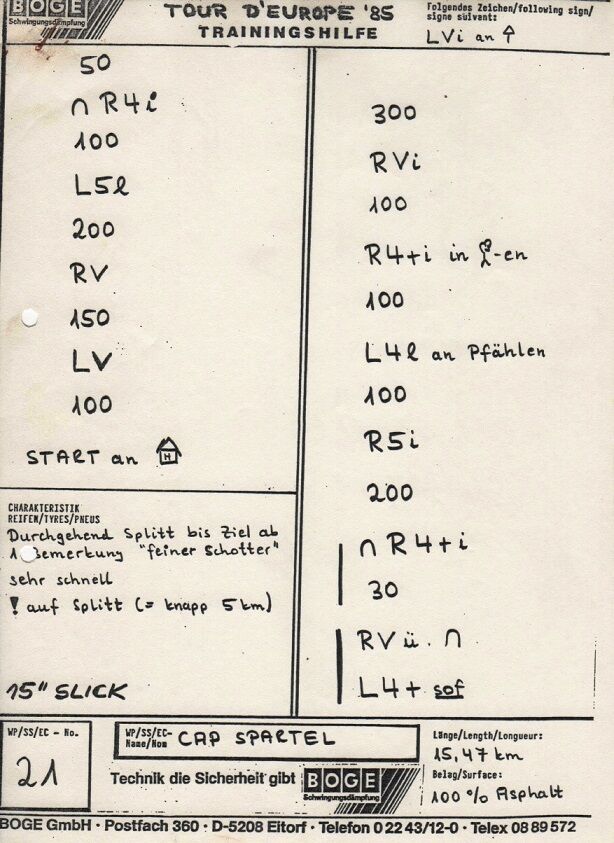 BOGE
Schwingungsdämpfung
TOUR D'EUROPE '85
TRAININGSHILFE
Folgendes Zeichen/following sign/
signe suivant:
LVi an ↑
50
∩ R4i
100
L5l
200
RV
150
LV
100
START an H
CHARAKTERISTIK
REIFEN/TYRES/PNEUS
Durchgehend Splitt bis Ziel ab
1. Bemerkung "feiner Schotter"
sehr schnell
! auf Splitt (= knapp 5 km)
15" SLICK
300
RVi
100
R4+i in -en
100
L4l an Pfählen
100
R5i
200
∩ R4+i
30
RV ü. ∩
L4+ sof
WP/SS/EC - No.
21
WP/SS/EC-
Name/Nom CAP SPARTEL
Technik die Sicherheit gibt BOGE
Schwingungsdämpfung
Länge/Length/Longueur:
15,47 km
Belag/Surface:
100 % Asphalt
BOGE GmbH · Postfach 360 · D-5208 Eitorf · Telefon 0 22 43/12-0 · Telex 08 89 572